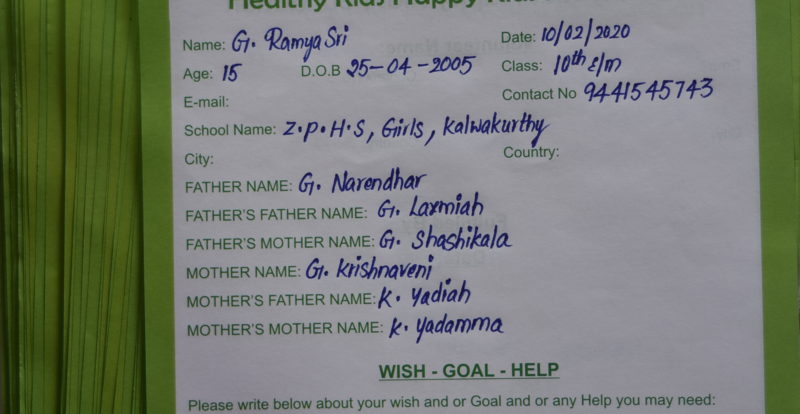 Healthy Kids Happy Kids
Name: G. Ramya Sri Date: 10/02/2020
Age: 15 D.O.B 25-04-2005 Class: 10th E/m
E-mail: Contact No 9441545743
School Name: Z.P.H.S, Girls, Kalwakurthy
City: Country:
FATHER NAME: G. Narendhar
FATHER'S FATHER NAME: G. Laxmiah
FATHER'S MOTHER NAME: G. Shashikala
MOTHER NAME: G. Krishnaveni
MOTHER'S FATHER NAME: K. Yadiah
MOTHER'S MOTHER NAME: K. Yadamma
WISH - GOAL - HELP
Please write below about your wish and or Goal and or any Help you may need: